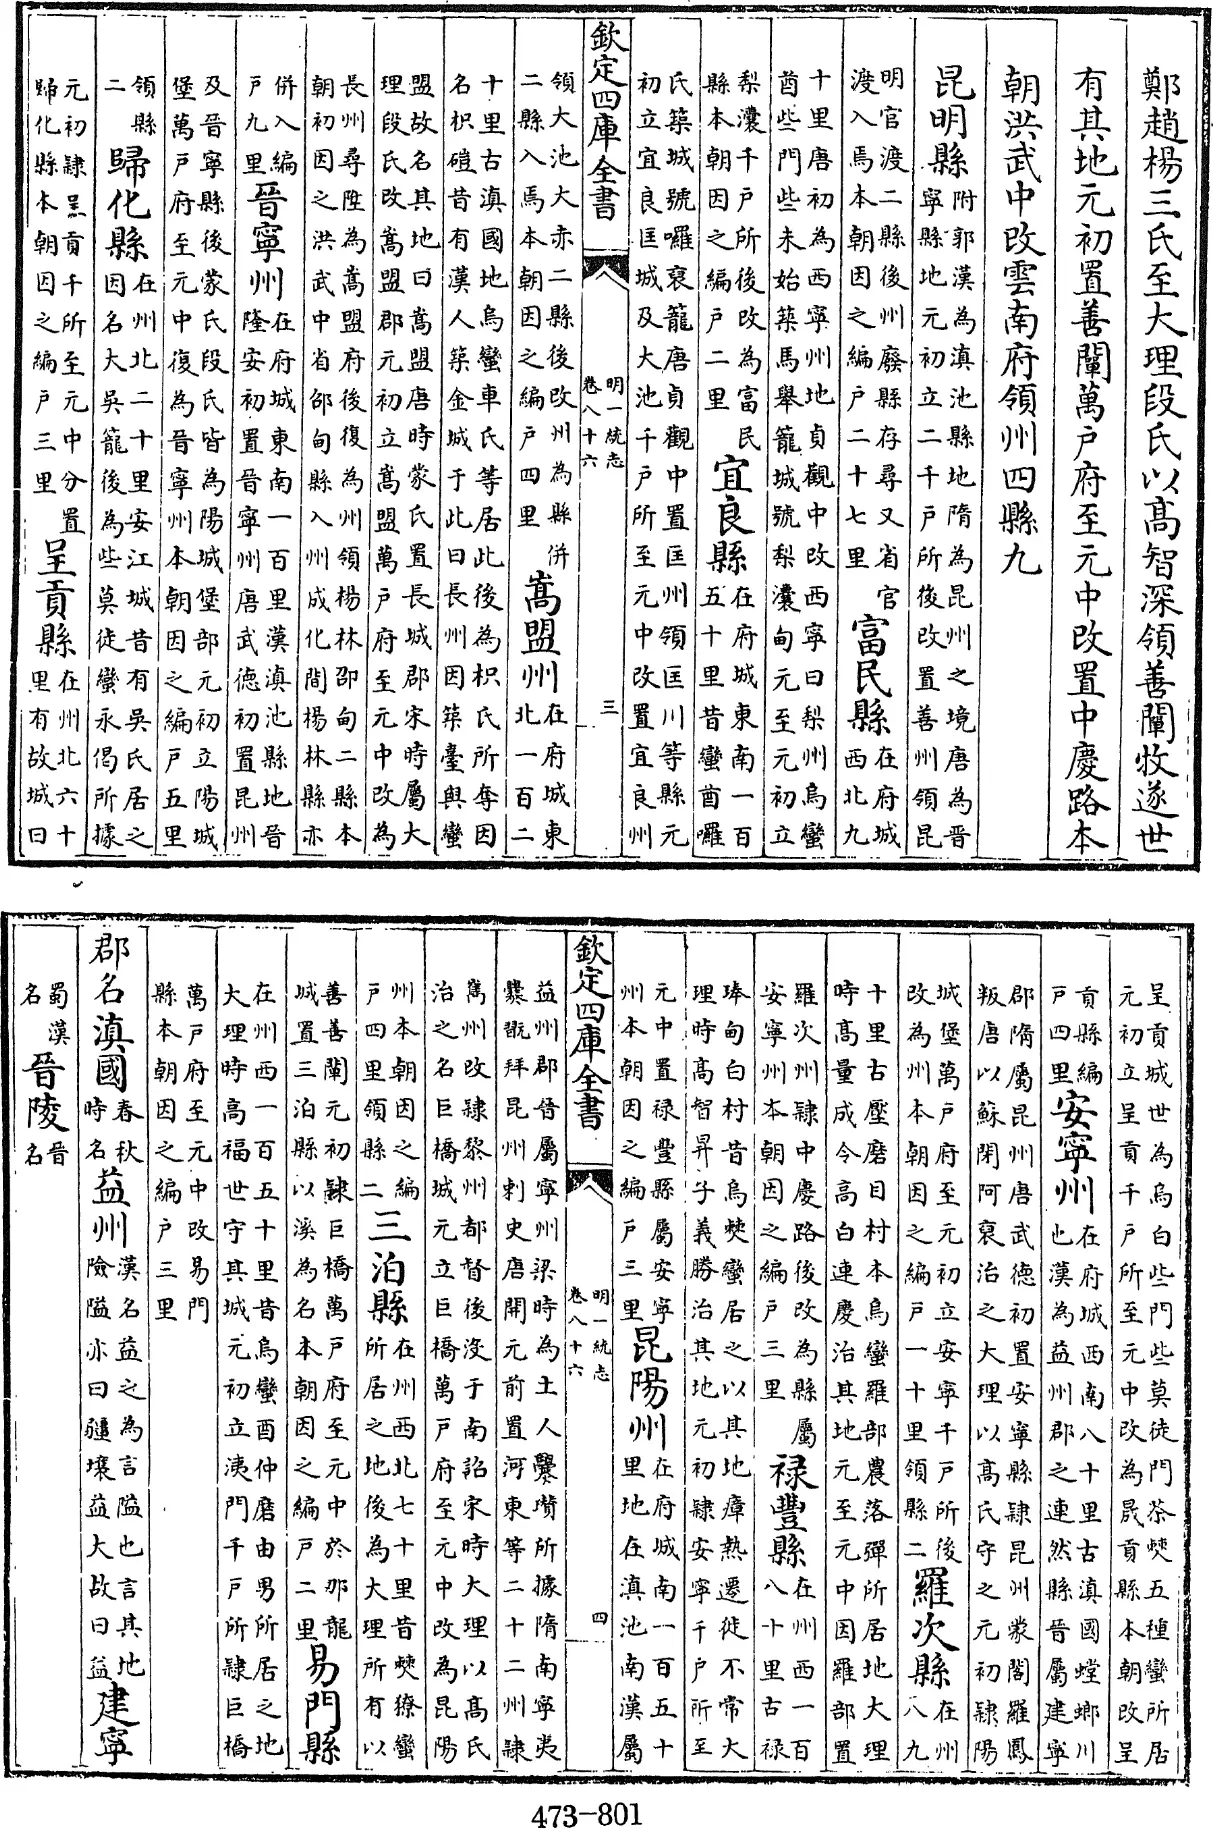 鄭趙楊三氏至大理段氏以髙智深領善闡牧遂世
有其地元初置善闡萬户府至元中改置中慶路本
朝洪武中改雲南府領州四縣九
昆明縣附郭漢為滇池縣地隋為昆州之境唐為晉寧縣地元初立二千户所後改置善州領昆
明官渡二縣後州廢縣存尋又省官渡入焉本朝因之編户二十七里富民縣在府城西北九
十里唐初為西寧州地貞觀中改西寧曰梨州烏蠻酋些門些末始築馬舉籠城號梨瀼甸元至元初立
梨瀼千户所後改為富民縣本朝因之編户二里宜良縣在府城東南一百五十里昔蠻酋囉
氏築城號囉裒籠唐貞觀中置匡州領匡川等縣元初立宜良匡城及大池千户所至元中改置宜良州
欽定四庫全書
明一統志
卷八十六
三
領大池大赤二縣後改州為縣併二縣入焉本朝因之編户四里嵩盟州在府城東北一百二
十里古滇國地烏蠻車氏等居此後為枳氏所奪因名枳磑昔有漢人築金城于此曰長州因築臺與蠻
盟故名其地曰嵩盟唐時蒙氏置長城郡宋時屬大理段氏改嵩盟郡元初立嵩盟萬户府至元中改為
長州尋陞為嵩盟府後復為州領楊林邵甸二縣本朝初因之洪武中省邵甸縣入州成化間楊林縣亦
併入編户九里晉寧州在府城東南一百里漢滇池縣地晉隆安初置晉寧州唐武德初置昆州
及晉寧縣後蒙氏段氏皆為陽城堡部元初立陽城堡萬户府至元中復為晉寧州本朝因之編户五里
領縣二歸化縣在州北二十里安江城昔有吳氏居之因名大吳籠後為些莫徒蠻永偈所據
元初隷呈貢千所至元中分置歸化縣本朝因之編户三里呈貢縣在州北六十里有故城曰
呈貢城世為烏白些門些莫徒門茶㛍五種蠻所居元初立呈貢千户所至元中改為晟貢縣本朝改呈
貢縣編户四里安寧州在府城西南八十里古滇國螳螂川也漢為益州郡之連然縣晉屬建寧
郡隋屬昆州唐武德初置安寧縣隷昆州蒙閣羅鳳叛唐以蘇閉阿裒治之大理以髙氏守之元初隷陽
城堡萬户府至元初立安寧千户所後改為州本朝因之編户一十里領縣二羅次縣在州八九
十里古壓磨目村本烏蠻羅部農落彈所居地大理時髙量成令高白連慶治其地元至元中因羅部置
羅次州隷中慶路後改為縣屬安寧州本朝因之編户三里祿豐縣在州西一百八十里古祿
琫甸白村昔烏㛍蠻居之以其地瘴熱遷徙不常大理時髙智昇子義勝治其地元初隷安寧千户所至
元中置祿豐縣屬安寧州本朝因之編户三里昆陽州在府城南一百五十里地在滇池南漢屬
欽定四庫全書
明一統志
卷八十六
四
益州郡晉屬寧州梁時為土人爨瓚所據隋南寧夷爨翫拜昆州刺史唐開元前置河東等二十二州隷
嶲州改隷黎州都督後没于南詔宋時大理以髙氏治之名巨橋城元立巨橋萬户府至元中改為昆陽
州本朝因之編户四里領縣二三泊縣在州西北七十里昔㛍獠蠻所居之地後為大理所有以
善善闡元初隷巨橋萬户府至元中於那龍城置三泊縣以溪為名本朝因之編户二里易門縣
在州西一百五十里昔烏蠻酋仲磨由男所居之地大理時高福世守其城元初立洟門千户所隷巨橋
萬户府至元中改易門縣本朝因之編户三里
郡名滇國春秋時名益州漢名益之為言隘也言其地險隘亦曰疆壤益大故曰益建寧
蜀漢名晉陵晉名
473-801